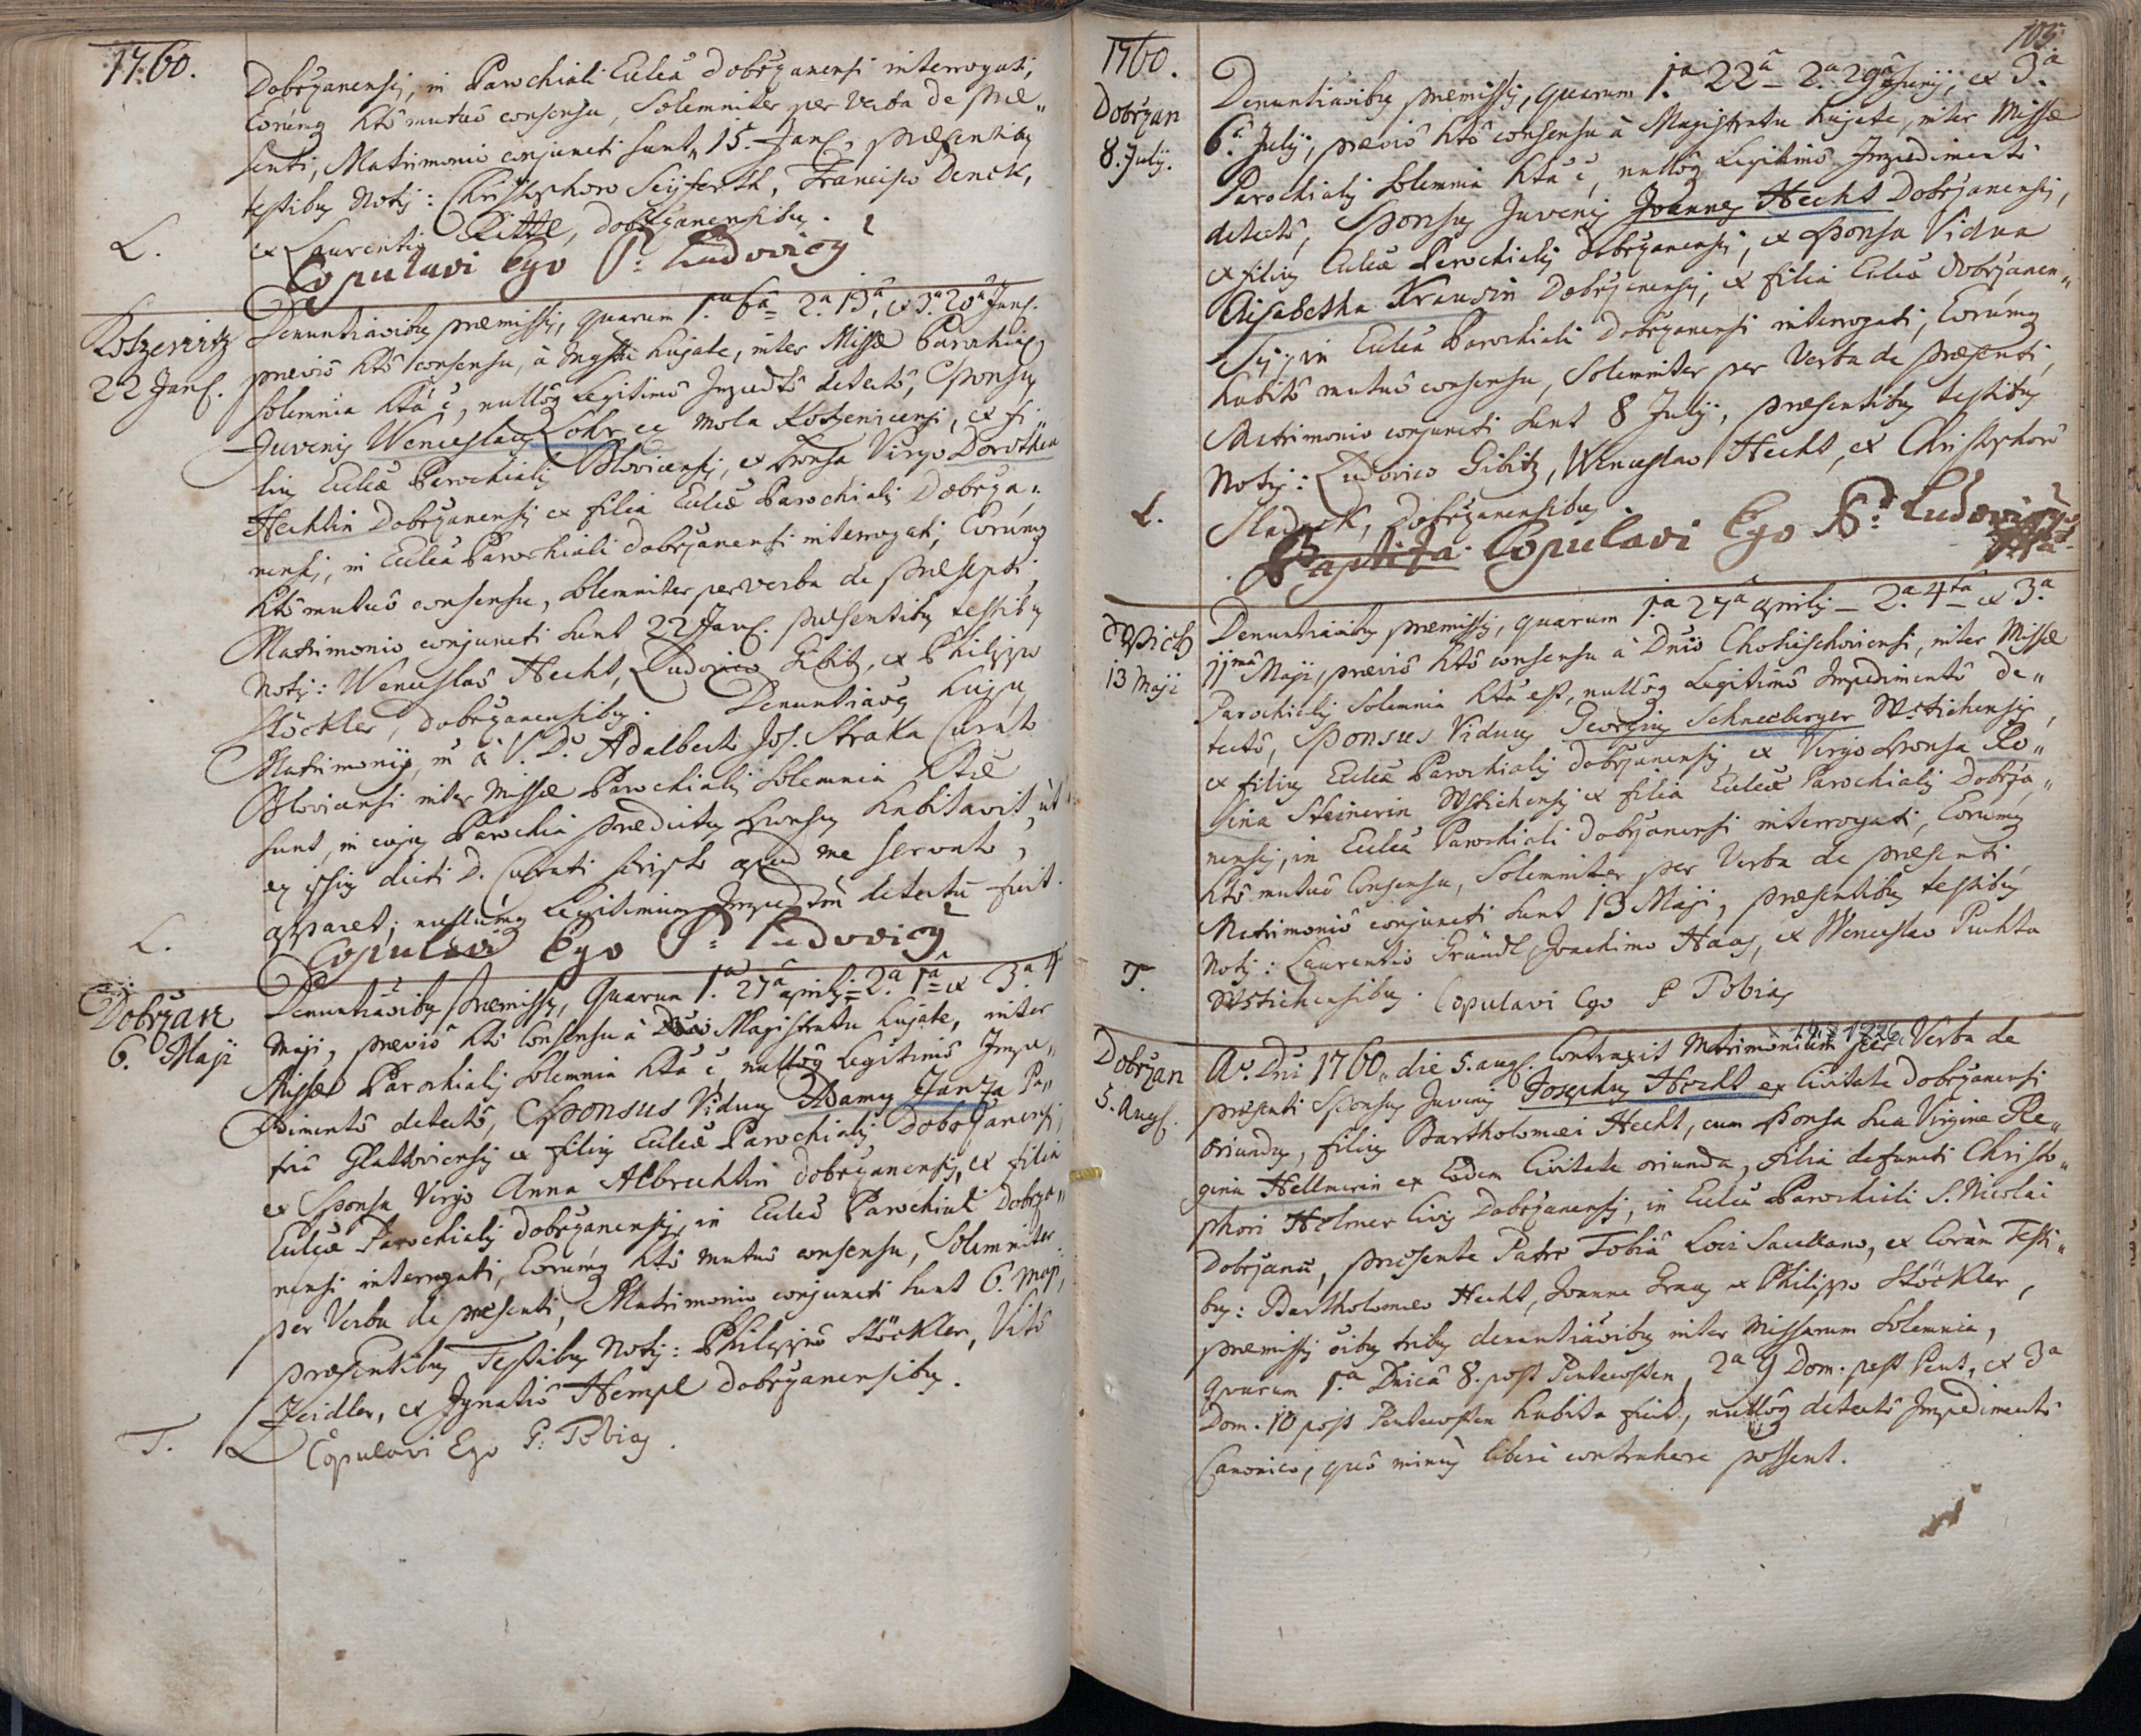 1760.
Dobrzanensis, in Parochiali Eccleâ Dobrzanensi interrogati,
Eorúmq htô mutuô consensu, Solemniter per Verba de præ„
senti, Matrimonio conjuncti sunt, 15. Janȩ, præsentibq
testibq Notis: Christophoro Seyferth, Francisco Denck,
et Laurentio Rittl, Dobrzanensibq.
L.
Copulavi Ego P: Ludovicq
Kotzenitz
22 Janȩ.
Denuntiâôibq præmissis, quarum 1.a 6â 2.a 13â, et 3.a 20â Janȩ.
præviô htô consensu, à Mgstu hujate, inter Missæ Parochialis
solemnia htâ ê, nullôq Legitimô Impedtô detectô, Sponsq
Juvenis Wenceslaq Lohr ex Mola Kotzenicensi, et fi„
liq Ecclæ Parochialis Blovicensis, et Sponsa Virgo Dorothea
Hechtin Dobrzanensis et filia Ecclæ Parochialis Dobrza„
nensis, in Eccleâ Parochiali Dobrzanensi interrogati, Eorúmq
htô mutuô consensu, solemniter per verba de præsenti,
Matrimonio conjuncti sunt 22 Janȩ. præsentibq testibq
Notis: Wenceslaô Hecht, Ludovico Gibitz, et Philippo
Stöckler, Dobrzanensibq. Denuntiâôq hujq
Matrimonij, à V. D. Adalberto Jos. Straka Curato
Blovicensi inter Missæ Parochialis Solemnia
sunt, in cujq Parochia prædictq Sponsq habitavit, ùt
ex ipsiq dicti D. Curati scripto apud me servato,
apparet; nullúmq Legitimum Impedtum detectû fuit.
L.
Copulavi Ego P: Ludovicq
Dobrzan
6. Maji
Denuntiâôibq Præmissis, Quarum 1.a 27â Aprilis 2.a 1â et 3.a 4
Maji, præviô htô Consensu à Magistratu hujate, inter
Missæ Parochialis Solemnia htâ ê nullôq Legitimô Impe„
dimentô detectô, Sponsus Viduq Adamq Janza Pa„
triâ Glattoviensis et filiq Ecclæ Parochialis Dobrzanensis,
et Sponsa Virgo Anna Albrechtin Dobrzanensis, et filia
Ecclæ Parochialis Dobrzanensis, in Eccleâ Parochiali Dobrza„
nensi interrogati, Eorúmq htô mutuô consensu, Solemniter
per Verba de præsenti, Matrimonio conjuncti sunt 6. Maji,
præsentibq Testibq Notis: Philippô Stöckler, Vitô
Zeidler, et Ignatiô Hempl Dobrzanensibq.
T.
Copulavi Ego P: Tobias.
1760.
Dobrzan
8. Julij.
Denuntiâôibq præmissis, quarum 1.a 22â 2.a 29â Junij, et 3.a
6.â Julij, præviô htô consensu à Magistratu hujate, inter Missæ
Parochialis Solemnia htâ ê, nullôq Legitimô Impedimentô
detectô, Sponsq Juvenis Joannes Hecht Dobrzanensis,
et filiq Ecclæ Parochialis Dobrzanensis, et Sponsa Vidua
Elisabetha Krausin Dobrzanensis, et filia Ecclæ Dobrzanen„
sis, in Eccleâ Parochiali Dobrzanensi interrogati, Eorúmq
habitô mutuô consensu, Solemniter per Verba de præsenti,
Matrimonio conjuncti sunt 8 Julij, præsentibq testibq
Notis: Ludovico Gibitz, Wenceslao Hecht, et Christophorô
Sladeck, Dobrzanensibq.
L.
Copulavi Ego P: Ludovicq
Wstich
13 Maji
Denuntiâôibq præmissis, quarum 1.a 27â Aprilis 2.a 4tâ et 3.a
11mâ Maji, præviô htô consensu à Dniô Chotieschoviensi, inter Missæ
Parochialis Solemnia htâ est, nullôq Legitimô Impedimentô de„
tectô, Sponsus Viduq Georgiq Schneeberger Wstichensis,
et filiq Ecclæ Parochialis Dobrzanensis, et Virgo Sponsa Ro„
sina Steinerin Wstichensis et filia Ecclæ Parochialis Dobrza„
nensis, in Eccleâ Parochiali Dobrzanensi interrogati, Eorúmq
htô mutuô Consensu, Solemniter per Verba de præsenti,
Matrimoniô conjuncti sunt 13 Maji, præsentibq testibq
Notis: Laurentio Gründl, Joachimo Haas, et Wenceslao Puchta
Wstichensibq. Copulavi Ego P Tobias
T.
Dobrzan
5. Augȩ.
Aô. Dni 1760. die 5. augȩ. Contraxit Matrimonium per Verba de
præsenti Sponsq Juvenis Josephq Hecht ex Civitate Dobrzanensi
oriundq, filiq Bartholomæi Hecht, cum Sponsa sua Virgine Re„
gina Hellmerin ex Eadem Civitate oriunda, filia defuncti Christo„
phori Helmer Civis Dobrzanensis, in Eccleâ Parochiali S. Nicolai
Dobrzanii, præsente Patre Tobiâ Loci Sacellano, et Coràm Testi„
bq: Bartholomæo Hecht, Joanne Graq et Philippo Stöckler,
præmissis ôibq tribq denuntiâôibq inter Missarum Solemnia,
quarum 1.a Dnicâ 8. post Pentecosten, 2.a 9 Dom. post Pent, et 3.a
Dom. 10 post Pentecosten habita fuit, nullôq detectô Impedimentô
Canonico, quô minùs liberè contrahere possent.